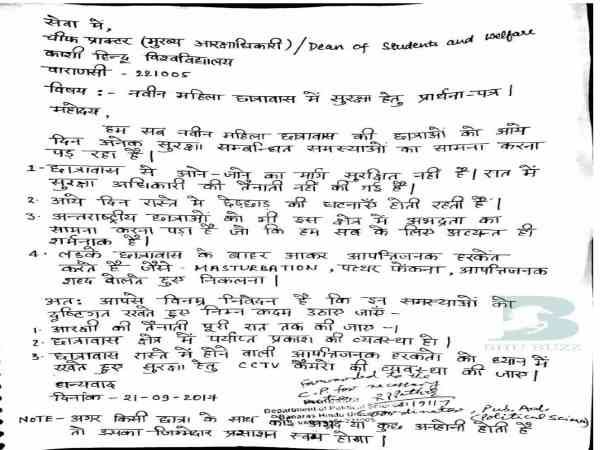 सेवा में,
चीफ प्राक्टर (मुख्य आरक्षाधिकारी) / Dean of Students and Welfare
काशी हिन्दू विश्वविद्यालय
वाराणसी - 221005
विषय :- नवीन महिला छात्रावास में सुरक्षा हेतु प्रार्थना-पत्र।
महोदय,
हम सब नवीन महिला छात्रावास की छात्राओं को आये
दिन अनेक सुरक्षा सम्बन्धित समस्याओं का सामना करना
पड़ रहा है।
1- छात्रावास में आने-जाने का मार्ग सुरक्षित नहीं है। रात में
सुरक्षा अधिकारी की तैनाती नहीं की गई है।
2. आये दिन रास्ते में छेड़छाड़ की घटनाएँ होती रहती हैं।
3. अन्तराष्ट्रीय छात्राओं को भी इस क्षेत्र में अभद्रता का
सामना करना पड़ा है जो कि हम सब के लिए अत्यन्त ही
शर्मनाक है।
4. लड़के छात्रावास के बाहर आकर आपत्तिजनक हरकत
करते हैं जैसे - MASTURBATION, पत्थर फेंकना, आपत्तिजनक
शब्द बोलते हुए निकलना।
अतः आपसे विनम्र निवेदन है कि इन समस्याओं को
दृष्टिगत रखते हुए निम्न कदम उठाए जाएँ -
1. आरक्षी की तैनाती पूरी रात तक की जाए -।
2. छात्रावास क्षेत्र में पर्याप्त प्रकाश की व्यवस्था हो।
3. छात्रावास रास्ते में होने वाली आपत्तिजनक हरकतों को ध्यान में
रखते हुए सुरक्षा हेतु CCTV कैमरों की व्यवस्था की जाए।
धन्यवाद
दिनांक - 21-09-2017
Forwarded to the
C.P for necessary
Department of Political Science
Banaras Hindu
Co-ordinator, Pub. Ad.
(Political Science)
NOTE- अगर किसी छात्रा के साथ कोई अभद्र या कुछ अनहोनी होती है
तो उसका जिम्मेदार प्रशासन स्वयं होगा।
BHU BUZZ